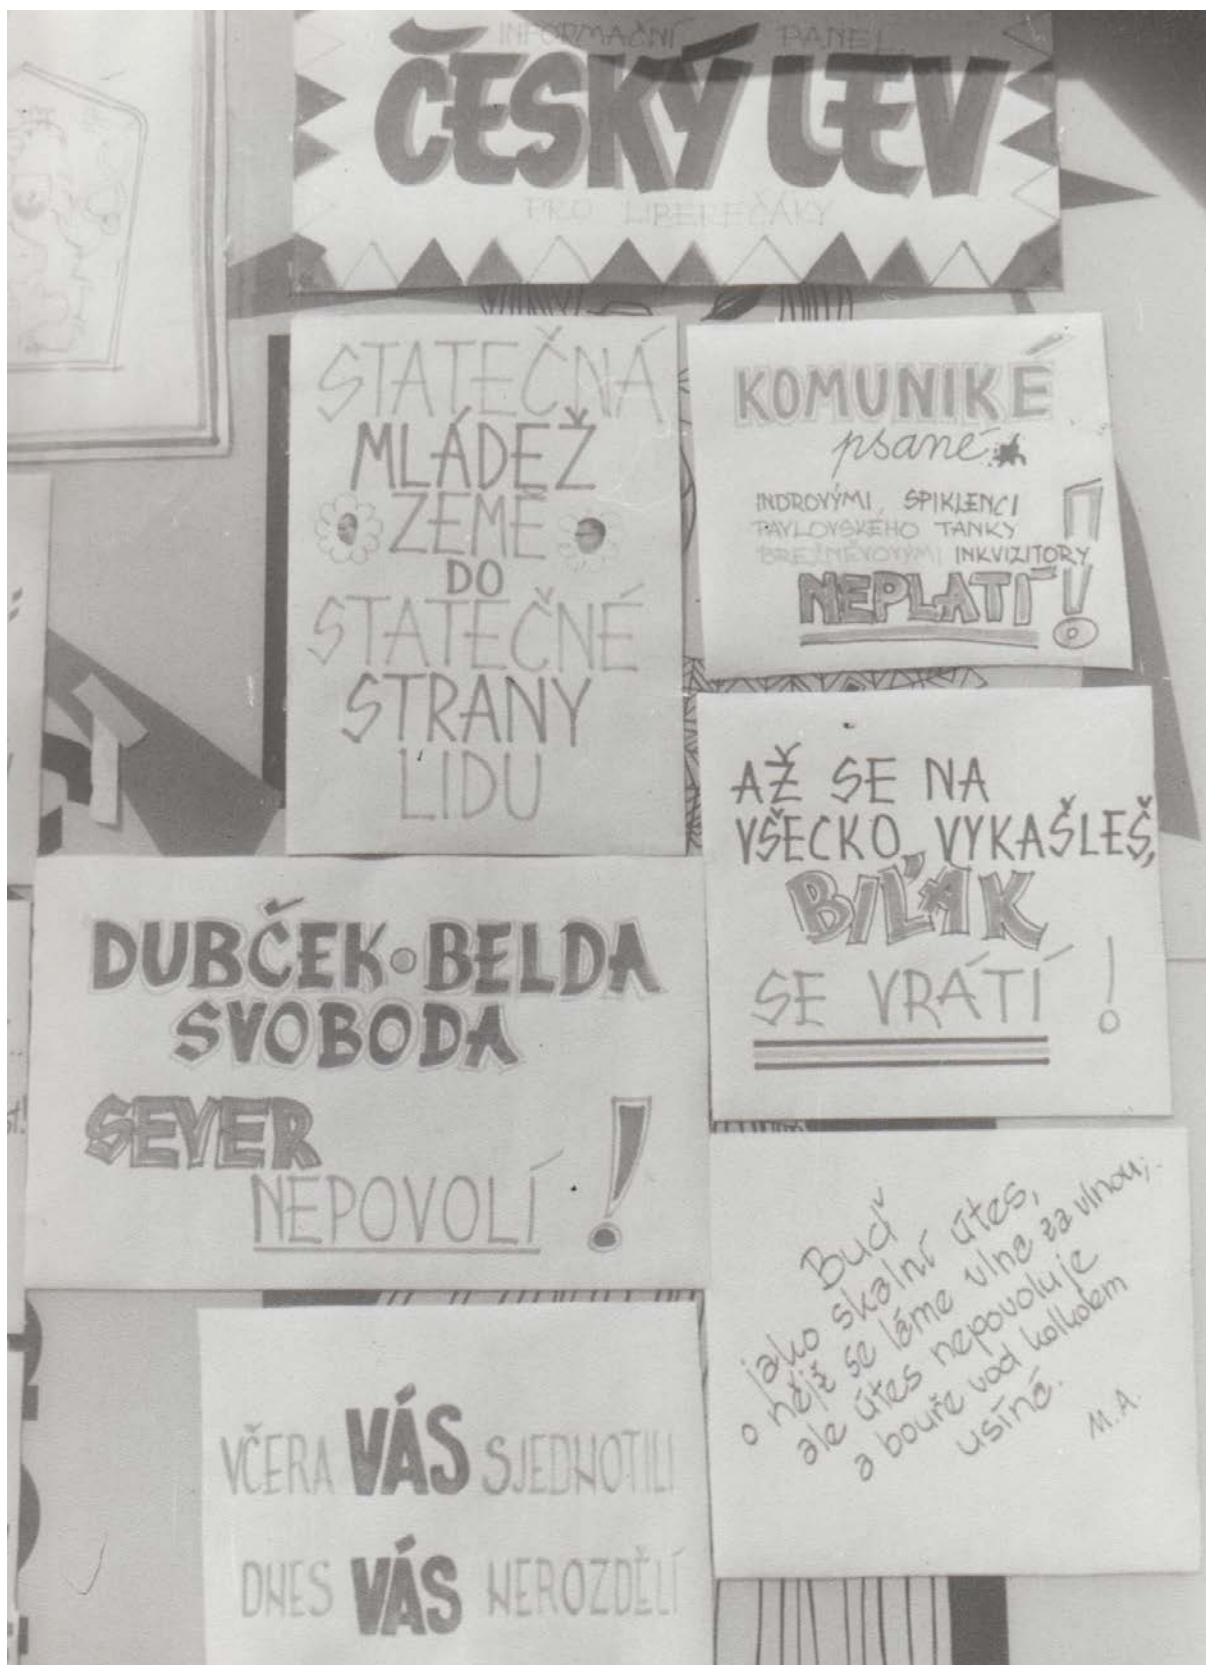 INFORMAČNÍ PANEL
ČESKÝ LEV
PRO LIBEREČÁKY
STATEČNÁ
MLÁDEŽ
ZEMĚ
DO
STATEČNÉ
STRANY
LIDU
KOMUNIKÉ
psané
INDROVÝMI, SPIKLENCI
PAVLOVSKÉHO TANKY
BREŽNĚVOVÝMI INKVIZITORY
NEPLATÍ!
AŽ SE NA
VŠECKO VYKAŠLEŠ,
BIĽAK
SE VRÁTÍ!
DUBČEK • BELDA
SVOBODA
SEVER
NEPOVOLÍ!
Buď
jako skalní útes,
o nějž se láme vlna za vlnou;
ale útes nepovoluje
a bouře vod kolkolem
usíná.
M.A.
VČERA VÁS SJEDNOTILI
DNES VÁS NEROZDĚLÍ